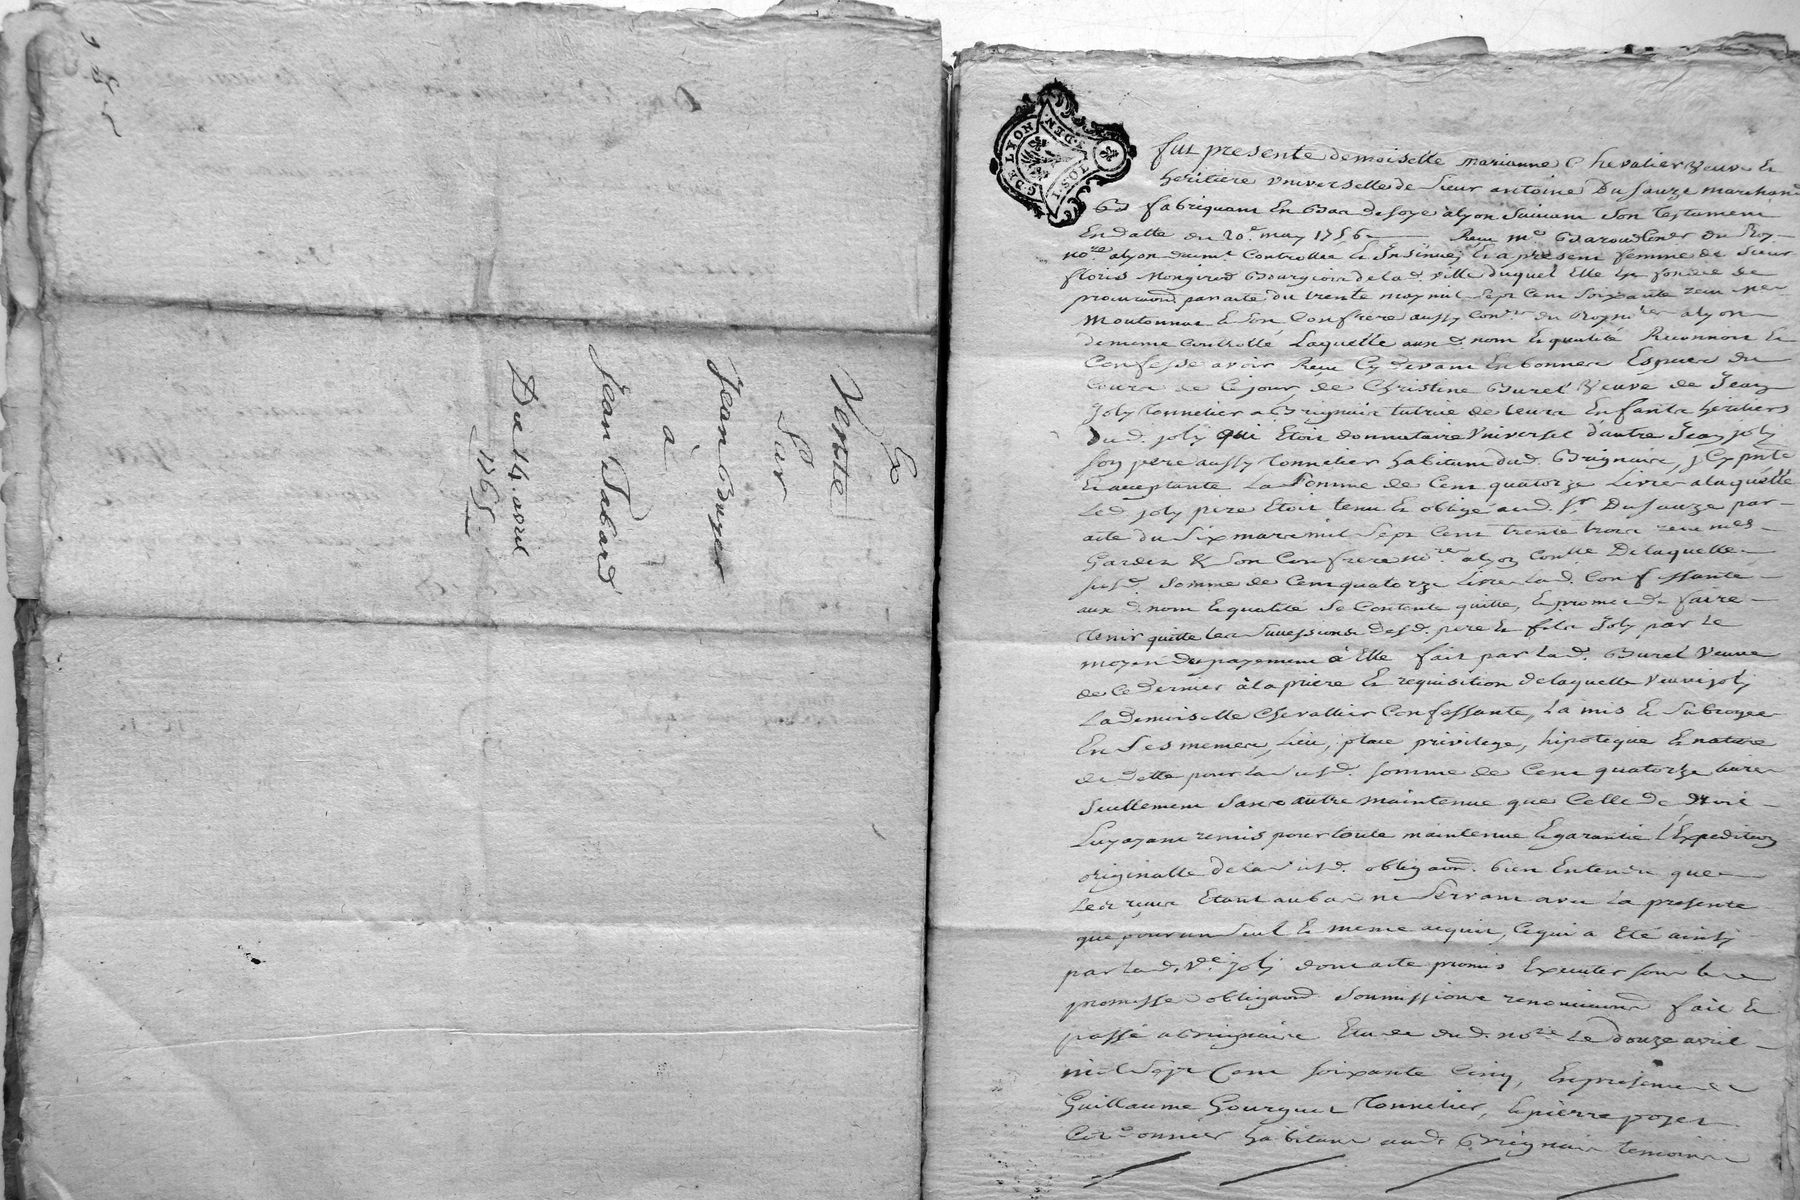 Ex
Vente
Pour
Jean Buyer
à
Jean Tabard
Du 14. avril
1765
G. DE LYON
1. SOL TOS 1 DEN.
fut presente demoiselle marianne Chevalier Veuve &
heritiere Universelle de Sieur antoine Du Sauze marchand
fabriquant En Bas de soye à lyon Suivant Son Testament
En datte du 20.e may 1756 Reçu Me Baroud Coner du Roy
nore a lyon duemt Controllée & Insinué, & a présent femme de Sieur
floris Mongirod Bourgeois de lad. ville duquel Elle Est fondée de
procuraon. par acte du trente may mil Sept Cent Soixante reçu Me
& Son Confrere aussy Coner du Roy nores a lyon
de meme Controllé Laquelle aux d. nom & qualité Reconnoit &
Confesse avoir Reçu Cy devant En bonnes Especes du
Cours de Ce jour, de Christine Burel Veuve de Jean
Joly Tonnelier a Brignais tutrice de leurs Enfants heritiers
Dud. joly qui Etoit donnataire Universel d'autre Jean joly
Son pere aussy Tonnelier habitant dud. Brignais, jcy pnte
& acceptante La Somme de Cent quatorze Livres a laquelle
Led. joly pere Etoit tenu & obligé aud. Sr. Du Sauze par
acte du Six mars mil Sept Cent trente trois reçu mes
Garden & Son Confrere nores a lyon Contlé De laquelle
susd. Somme de Cent quatorze Livres lad. Confessante
aux d. nom & qualité Se Contente quitte, & promet de faire
tenir quitte les Successions desd. pere & fils Joly par le
moyen du payement à Elle fait par lad. Burel Veuve
de Ce Dernier à la priere & requisition de laquelle Veuve joly
La demoiselle Chevallier Confessante, La mis & Subrogée
En Ses memes Lieu, place privilege, hipoteque & nature
de dette pour la susd. Somme de Cent quatorze livres
Seullement Sans autre maintenue que Celle de droit
Luy ayant remis pour toute maintenue & garantie l'Expedition
originalle de la susd. obligaon. bien Entendu que
Le Etant au bas ne Servant avec La presente
que pour un Seul & meme acquit, Ce qui a Eté ainsy
par lad. Ve joly dont acte promis Executer sous les
promesse obligaons Soumissions renonciaons fait &
passé a Brignais Etude dud. nore Le douze avril
mil Sept Cent soixante Cinq, En presence de
Guillaume Gourguet Tonnelier, & pierre poyet
Cordonnier habitans aud. Brignais temoins